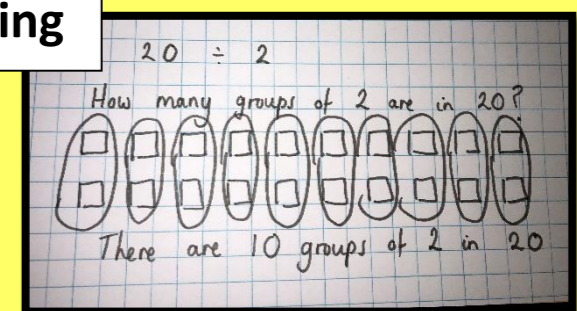 ing
20 ÷ 2
How many groups of 2 are in 20?
There are 10 groups of 2 in 20